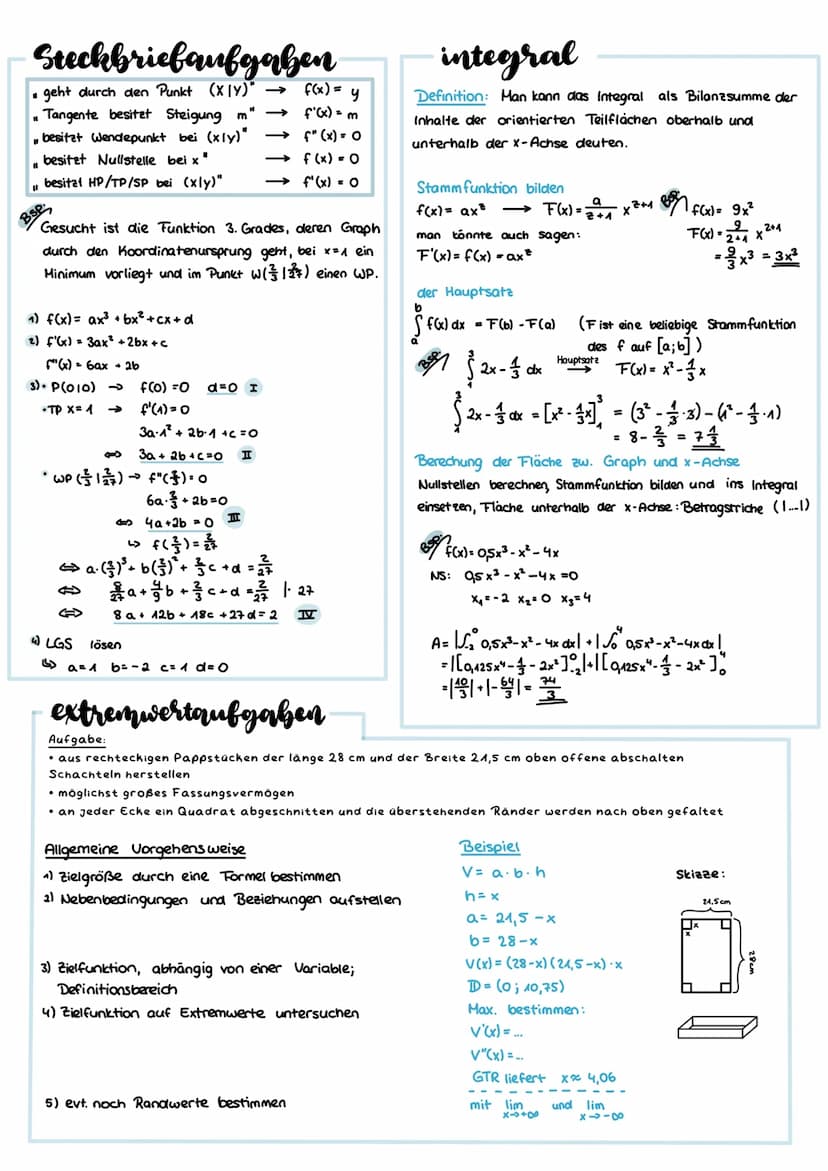 Steckbriefaufgaben
„geht durch den Punkt (x|y)" → f(x) = y
„Tangente besitzt Steigung m" → f'(x) = m
„besitzt Wendepunkt bei (x|y)" → f"(x) = 0
„besitzt Nullstelle bei x" → f(x) = 0
„besitzt HP/TP/SP bei (x|y)" → f'(x) = 0
Bsp:
Gesucht ist die Funktion 3. Grades, deren Graph
durch den Koordinatenursprung geht, bei x=1 ein
Minimum vorliegt und im Punkt W(2/3|2/27) einen WP.
1) f(x) = ax³ + bx² + cx + d
2) f'(x) = 3ax² + 2bx + c
f"(x) = 6ax + 2b
3) • P(0|0) → f(0) = 0 d=0 I
• TP x=1 → f'(1) = 0
3a·1² + 2b·1 + c = 0
⇔ 3a + 2b + c = 0 II
• WP (2/3|2/27) → f"(2/3) = 0
6a·2/3 + 2b = 0
⇔ 4a + 2b = 0 III
↳ f(2/3) = 2/27
⇔ a·(2/3)³ + b(2/3)² + 2/3c + d = 2/27
⇔ 8/27a + 4/9b + 2/3c + d = 2/27 |· 27
⇔ 8a + 12b + 18c + 27d = 2 IV
4) LGS lösen
↳ a=1 b=-2 c=1 d=0
integral
Definition: Man kann das Integral als Bilanzsumme der
Inhalte der orientierten Teilflächen oberhalb und
unterhalb der x-Achse deuten.
Stammfunktion bilden
f(x) = ax^z → F(x) = a/(z+1) x^(z+1) Bsp: f(x) = 9x²
man könnte auch sagen: F(x) = 9/(2+1) x^(2+1)
F'(x) = f(x) = ax^z = 9/3 x³ = 3x³
der Hauptsatz
∫_a^b f(x) dx = F(b) - F(a) (F ist eine beliebige Stammfunktion
des f auf [a;b])
Bsp: ∫_1^3 2x - 1/3 dx Hauptsatz → F(x) = x² - 1/3 x
∫_1^3 2x - 1/3 dx = [x² - 1/3x]_1^3 = (3² - 1/3·3) - (1² - 1/3·1)
= 8 - 2/3 = 7 1/3
Berechung der Fläche zw. Graph und x-Achse
Nullstellen berechnen, Stammfunktion bilden und ins Integral
einsetzen, Fläche unterhalb der x-Achse: Betragstriche (|...|)
Bsp: f(x) = 0,5x³ - x² - 4x
NS: 0,5x³ - x² - 4x = 0
x₁=-2 x₂=0 x₃=4
A = |∫_-2^0 0,5x³ - x² - 4x dx| + |∫_0^4 0,5x³ - x² - 4x dx|
= |[0,125x⁴ - 1/3 - 2x²]_-2^0| + |[0,125x⁴ - 1/3 - 2x²]_0^4|
= |10/3| + |-64/3| = 74/3
extremwertaufgaben
Aufgabe:
• aus rechteckigen Pappstücken der länge 28 cm und der Breite 21,5 cm oben offene abschalten
Schachteln herstellen
• möglichst großes Fassungsvermögen
• an jeder Ecke ein Quadrat abgeschnitten und die überstehenden Ränder werden nach oben gefaltet
Allgemeine Vorgehensweise
1) Zielgröße durch eine Formel bestimmen
2) Nebenbedingungen und Beziehungen aufstellen
3) Zielfunktion, abhängig von einer Variable;
Definitionsbereich
4) Zielfunktion auf Extremwerte untersuchen
5) evt. noch Randwerte bestimmen
Beispiel
V = a·b·h
h = x
a = 21,5 - x
b = 28 - x
V(x) = (28-x)(21,5-x)·x
𝔻 = (0 ; 10,75)
Max. bestimmen:
V'(x) = ...
V"(x) = ...
GTR liefert x ≈ 4,06
mit lim x→+∞ und lim x→-∞
Skizze:
21,5 cm
x
x
28cm